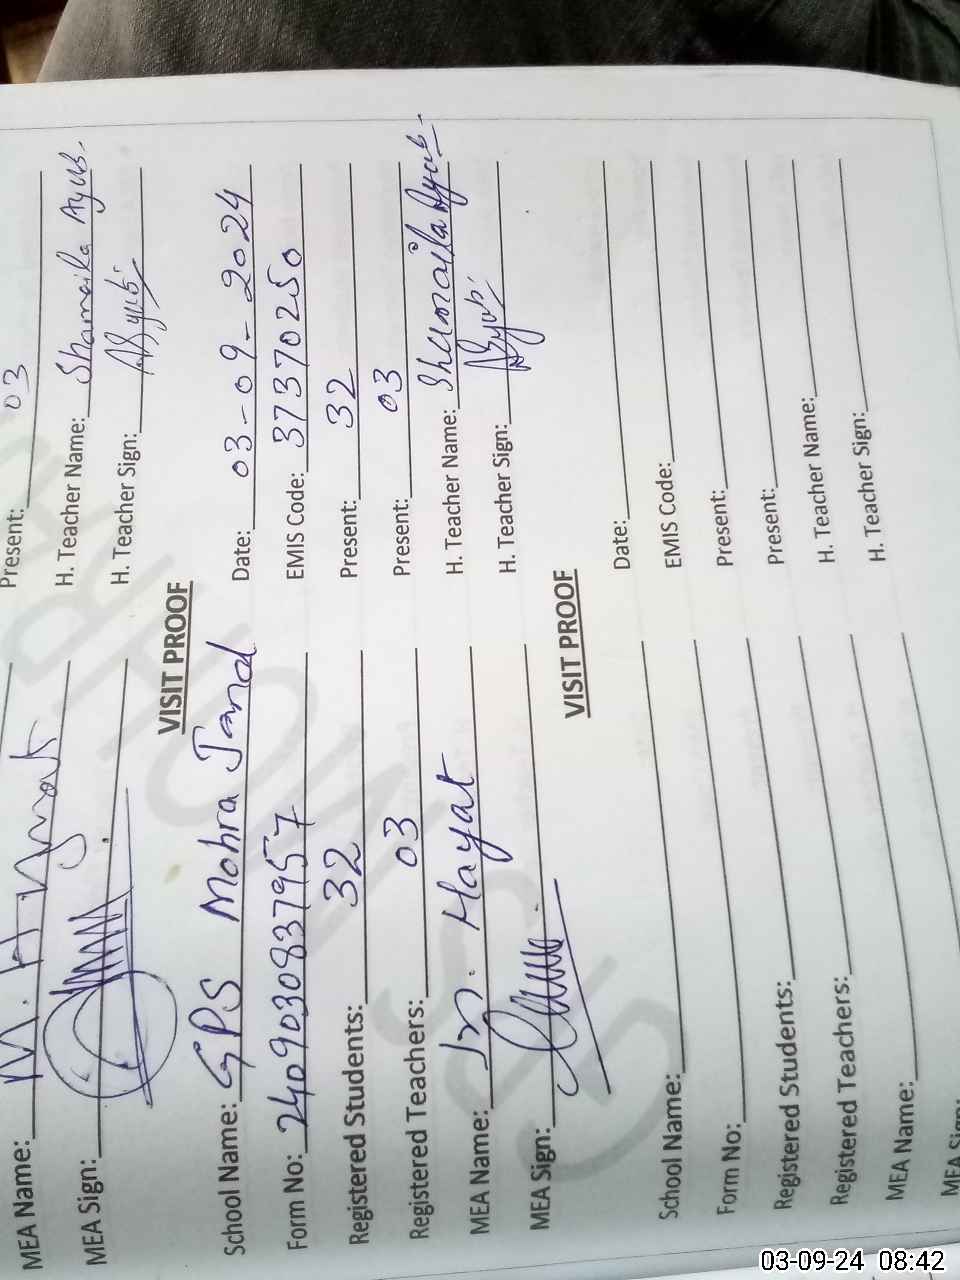 Present: 03
MEA Name: M. Hayat H. Teacher Name: Shamaila Ayub.
MEA Sign: H. Teacher Sign: Ayub.
VISIT PROOF
School Name: GPS Mohra Jand Date: 03-09-2024
Form No: 240903083795 7 EMIS Code: 37370250
Registered Students: 32 Present: 32
Registered Teachers: 03 Present: 03
MEA Name: M. Hayat H. Teacher Name: Shumaila Ayub.
MEA Sign: H. Teacher Sign: Ayub.
VISIT PROOF
School Name: Date:
Form No: EMIS Code:
Registered Students: Present:
Registered Teachers: Present:
MEA Name: H. Teacher Name:
MEA Sign H. Teacher Sign:
03-09-24 08:42